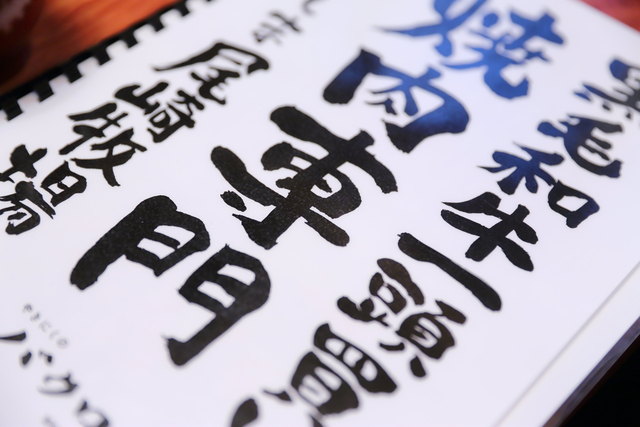 黒毛和牛一頭買
焼肉専門
尾崎牧場
やきにくの
バクロ